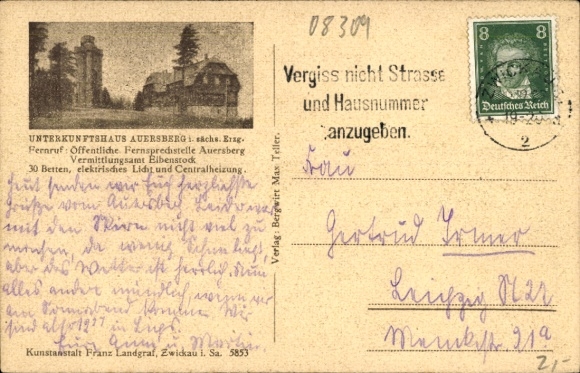 08309
8 8
Deutsches Reich
ZWICKAU
2
Vergiss nicht Strasse
und Hausnummer
anzugeben.
UNTERKUNFTSHAUS AUERSBERG i. sächs. Erzg.
Fernruf: Öffentliche Fernsprechstelle Auersberg
Vermittlungsamt Eibenstock
30 Betten, elektrisches Licht und Centralheizung.
Heut senden wir Euch herzlichste
Grüße vom Auersberg. Leider war
mit den Skiern nicht viel zu
machen, da wenig Schnee liegt,
aber das Wetter ist herrlich. Nun
alles andere mündlich, wenn wir
am Sonnabend kommen. Wir
sind also 19⁵⁷ in
Eure u.
Verlag: Bergwirt Max Teller.
Frau
Gertrud Irmer
Leipzig N 22
21a
Kunstanstalt Franz Landgraf, Zwickau i. Sa. 5853
2,-